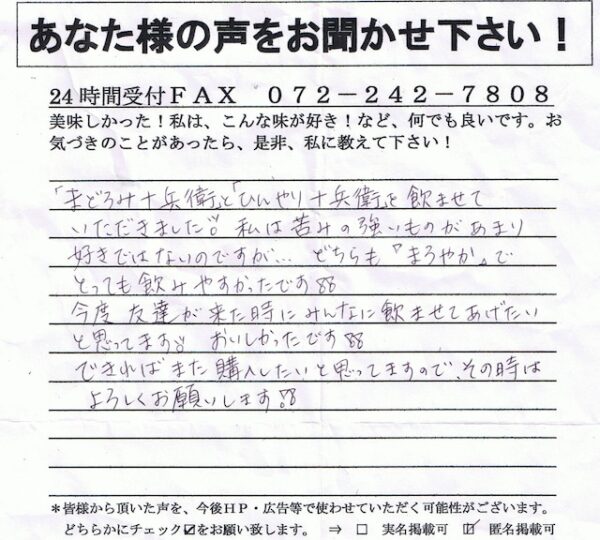 あなた様の声をお聞かせ下さい！
24時間受付ＦＡＸ　０７２－２４２－７８０８
美味しかった！私は、こんな味が好き！など、何でも良いです。お
気づきのことがあったら、是非、私に教えて下さい！
「まどろみ十兵衛」と「ひんやり十兵衛」を飲ませて
いただきました!! 私は苦みの強いものがあまり
好きではないのですが… どちらも『まろやか』で
とっても飲みやすかったです!!
今度 友達が来た時にみんなに飲ませてあげたい
と思ってます!! おいしかったです!!
できればまた購入したいと思ってますので、その時は
よろしくお願いします!!
＊皆様から頂いた声を、今後ＨＰ・広告等で使わせていただく可能性がございます。
どちらかにチェック☑をお願い致します。 ⇒ □ 実名掲載可 ☑ 匿名掲載可